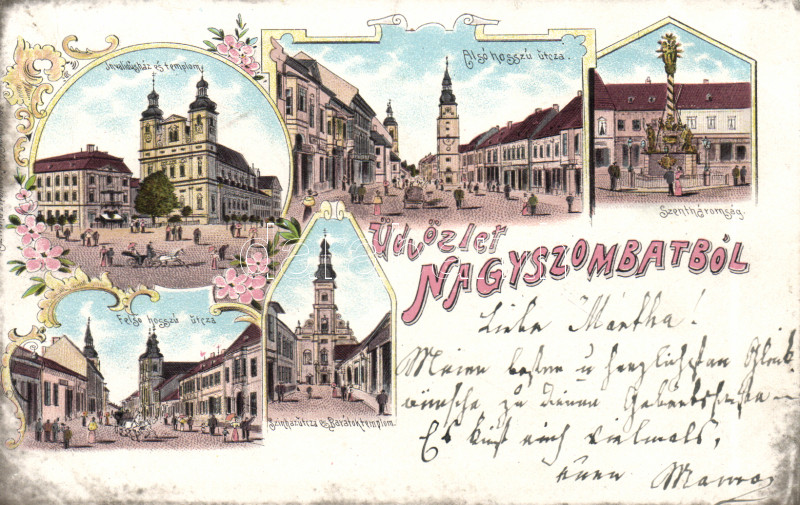 Invalidusház és templom.
Alsó hosszú útcza.
Szentháromság.
Üdvözlet
NAGYSZOMBATBÓL
Felső hosszú útcza
Szinházútcza és Barátok templom.
Liebe Mártha!
Meine besten u herzlichsten Glück
wünsche zu deinem Geburtsfeste –
Es küsst euch vielmals,
euere